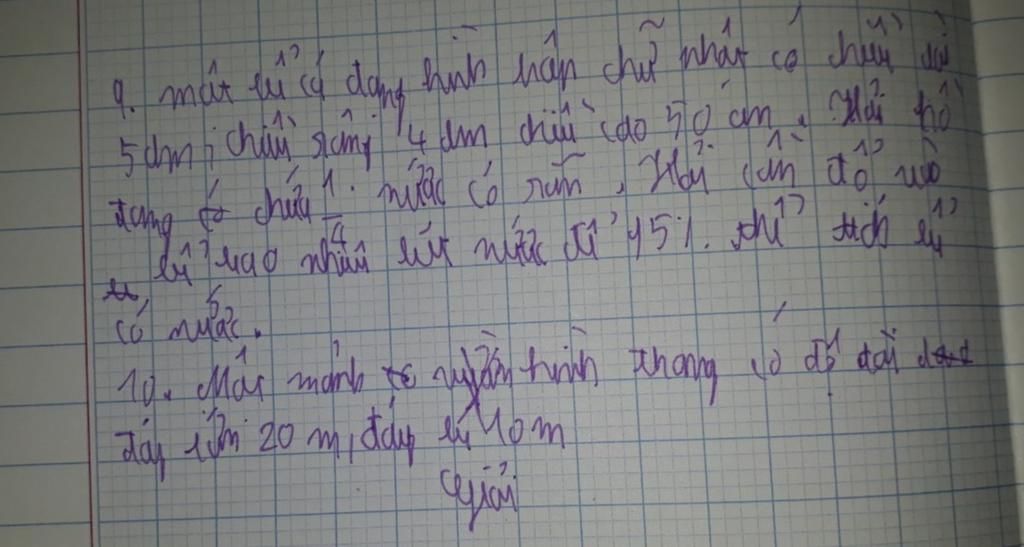 9. một bể cá dạng hình hộp chữ nhật có chiều dài
5dm, chiều rộng 4 dm chiều cao 50 cm. Hỏi
đang chứa 1/4 nước có sẵn, Hỏi cần đổ vào
bể bao nhiêu lít nước để 45%. thể tích bể
có nước.
10. Một mảnh vườn hình thang có độ dài
đáy lớn 20 m, đáy bé 10 m
Giải